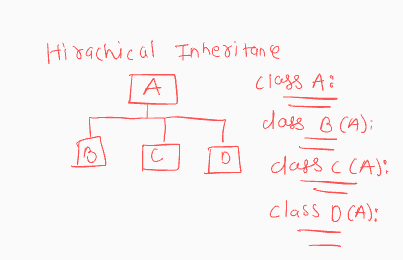 Hirachical Inheritane
A
B C D
class A:
class B (A):
class C (A):
class D (A):